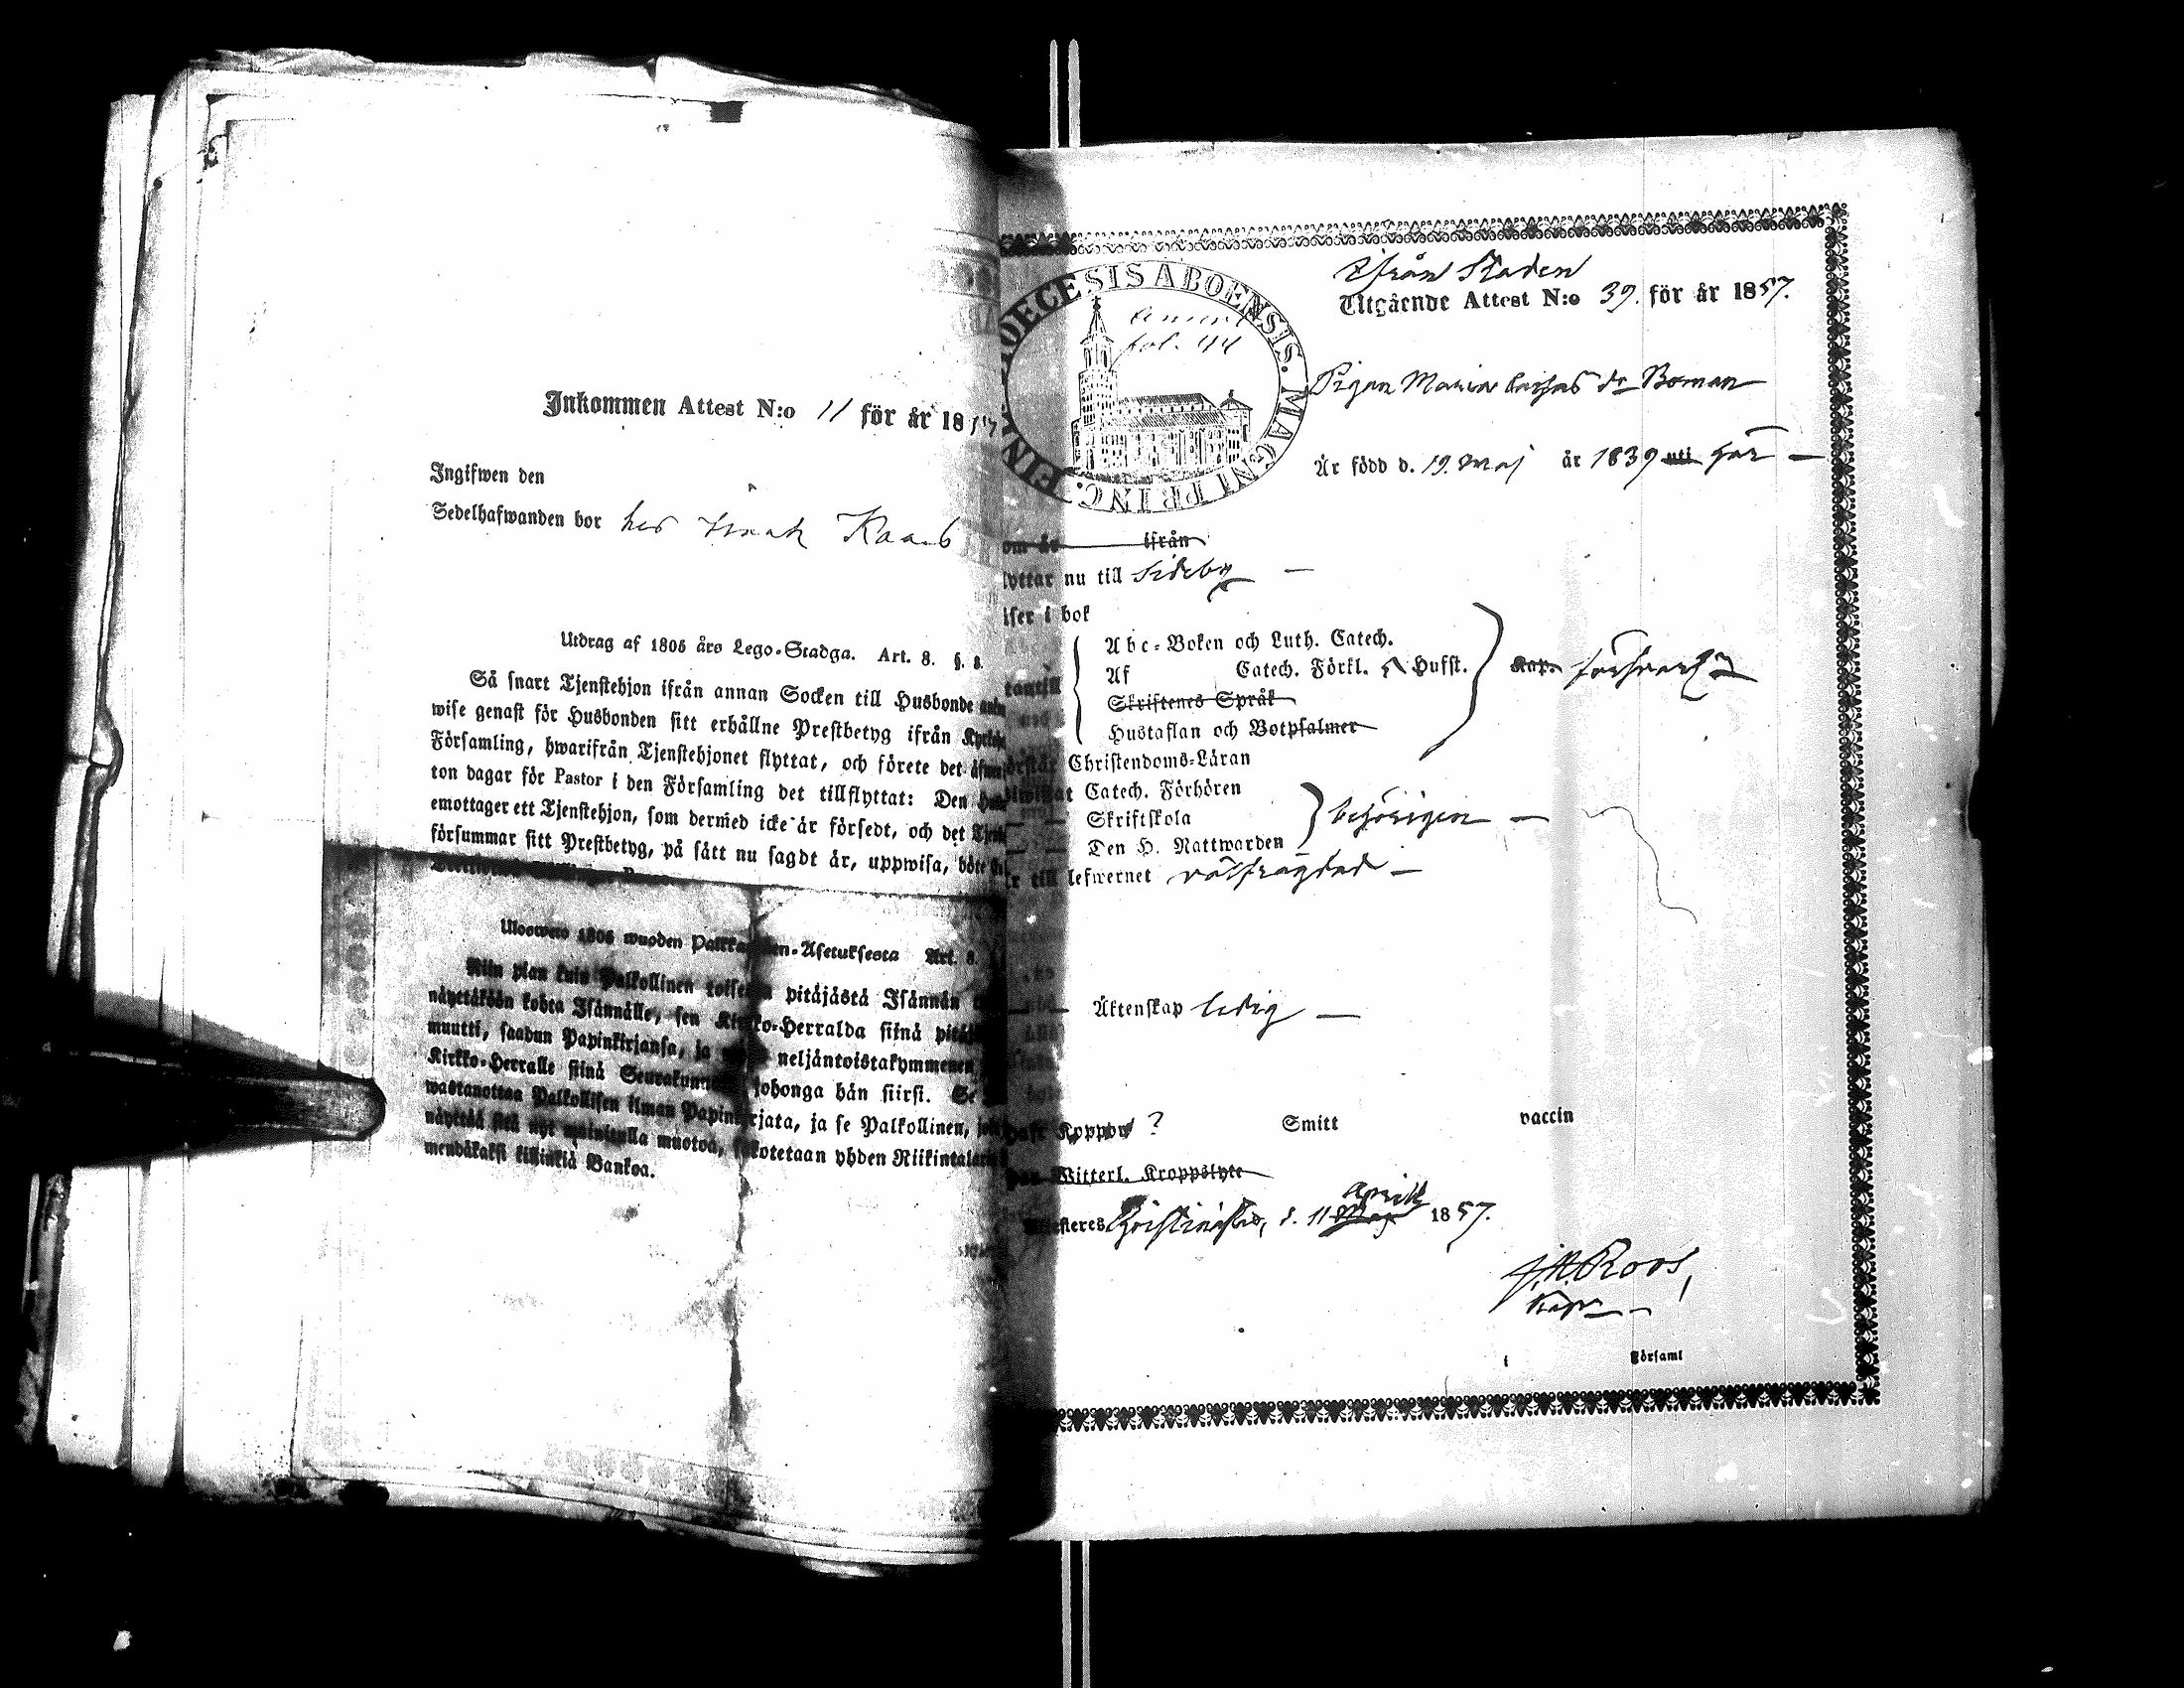 Inkommen Attest N:o 11 för år 18
Ingifwen den
Sedelhafwanden bor hos Isaak
Utdrag af 1805 års Lego-Stadga. Art. 8. §. 8.
Så snart Tjenstehjon ifrån annan Socken till Husbonde
wise genast för Husbonden sitt erhållne Prestbetyg ifrån
Församling, hwarifrån Tjenstehjonet flyttat, och förete det
ton dagar för Pastor i den Församling det tillflyttat: Den
emottager ett Tjenstehjon, som dermed icke är försedt, och det
försummar sitt Prestbetyg, på sätt nu sagdt är, uppwisa, böte
Ulosweto 1805 wuoden Asetuksesta Art. 8.
Niin pian kuin Palkollinen pitäjästä Isännän
näyttäköön kohta Isännälle, sen Kirkko-Herralda siinä
muutti, saadun Papinkirjansa, ja neljäntoistakymmenen
Kirkko-Herralle siinä johonga hän siirsi. Se
wastanottaa Palkollisen ilman ja se Palkollinen,
näyttää sitä nyt muotoa, yhden
mendäkaksi killinkiä Bankoa.
DIOECESIS ABOENSIS. MAGNI PRINC. FINL
fol. 44
Ifrån Staden
Utgående Attest N:o 39. för år 1857.
Pigan Maria dr Boman
Är född d. 19. Maj år 1839 uti här
om är ifrån
lyttar nu till Sideby
äser i bok
Abc-Boken och Luth. Catech.
Af Catech. Förkl. Hufst.
Skriftenes Språk
Hustaflan och Botpsalmer
Kap. försvarl
Christendoms-Läran
Catech. Förhören
Skriftskola
Den H. Nattwarden
behörigen
r till lefwernet välfrägdad
Äktenskap ledig
Haft Koppor ? Smitt vaccin
Witterl. Kroppslyte
Attesteres Christinestad, d. 11 Maj April 1857.
J. A. Roos,
Kapn
i Församl